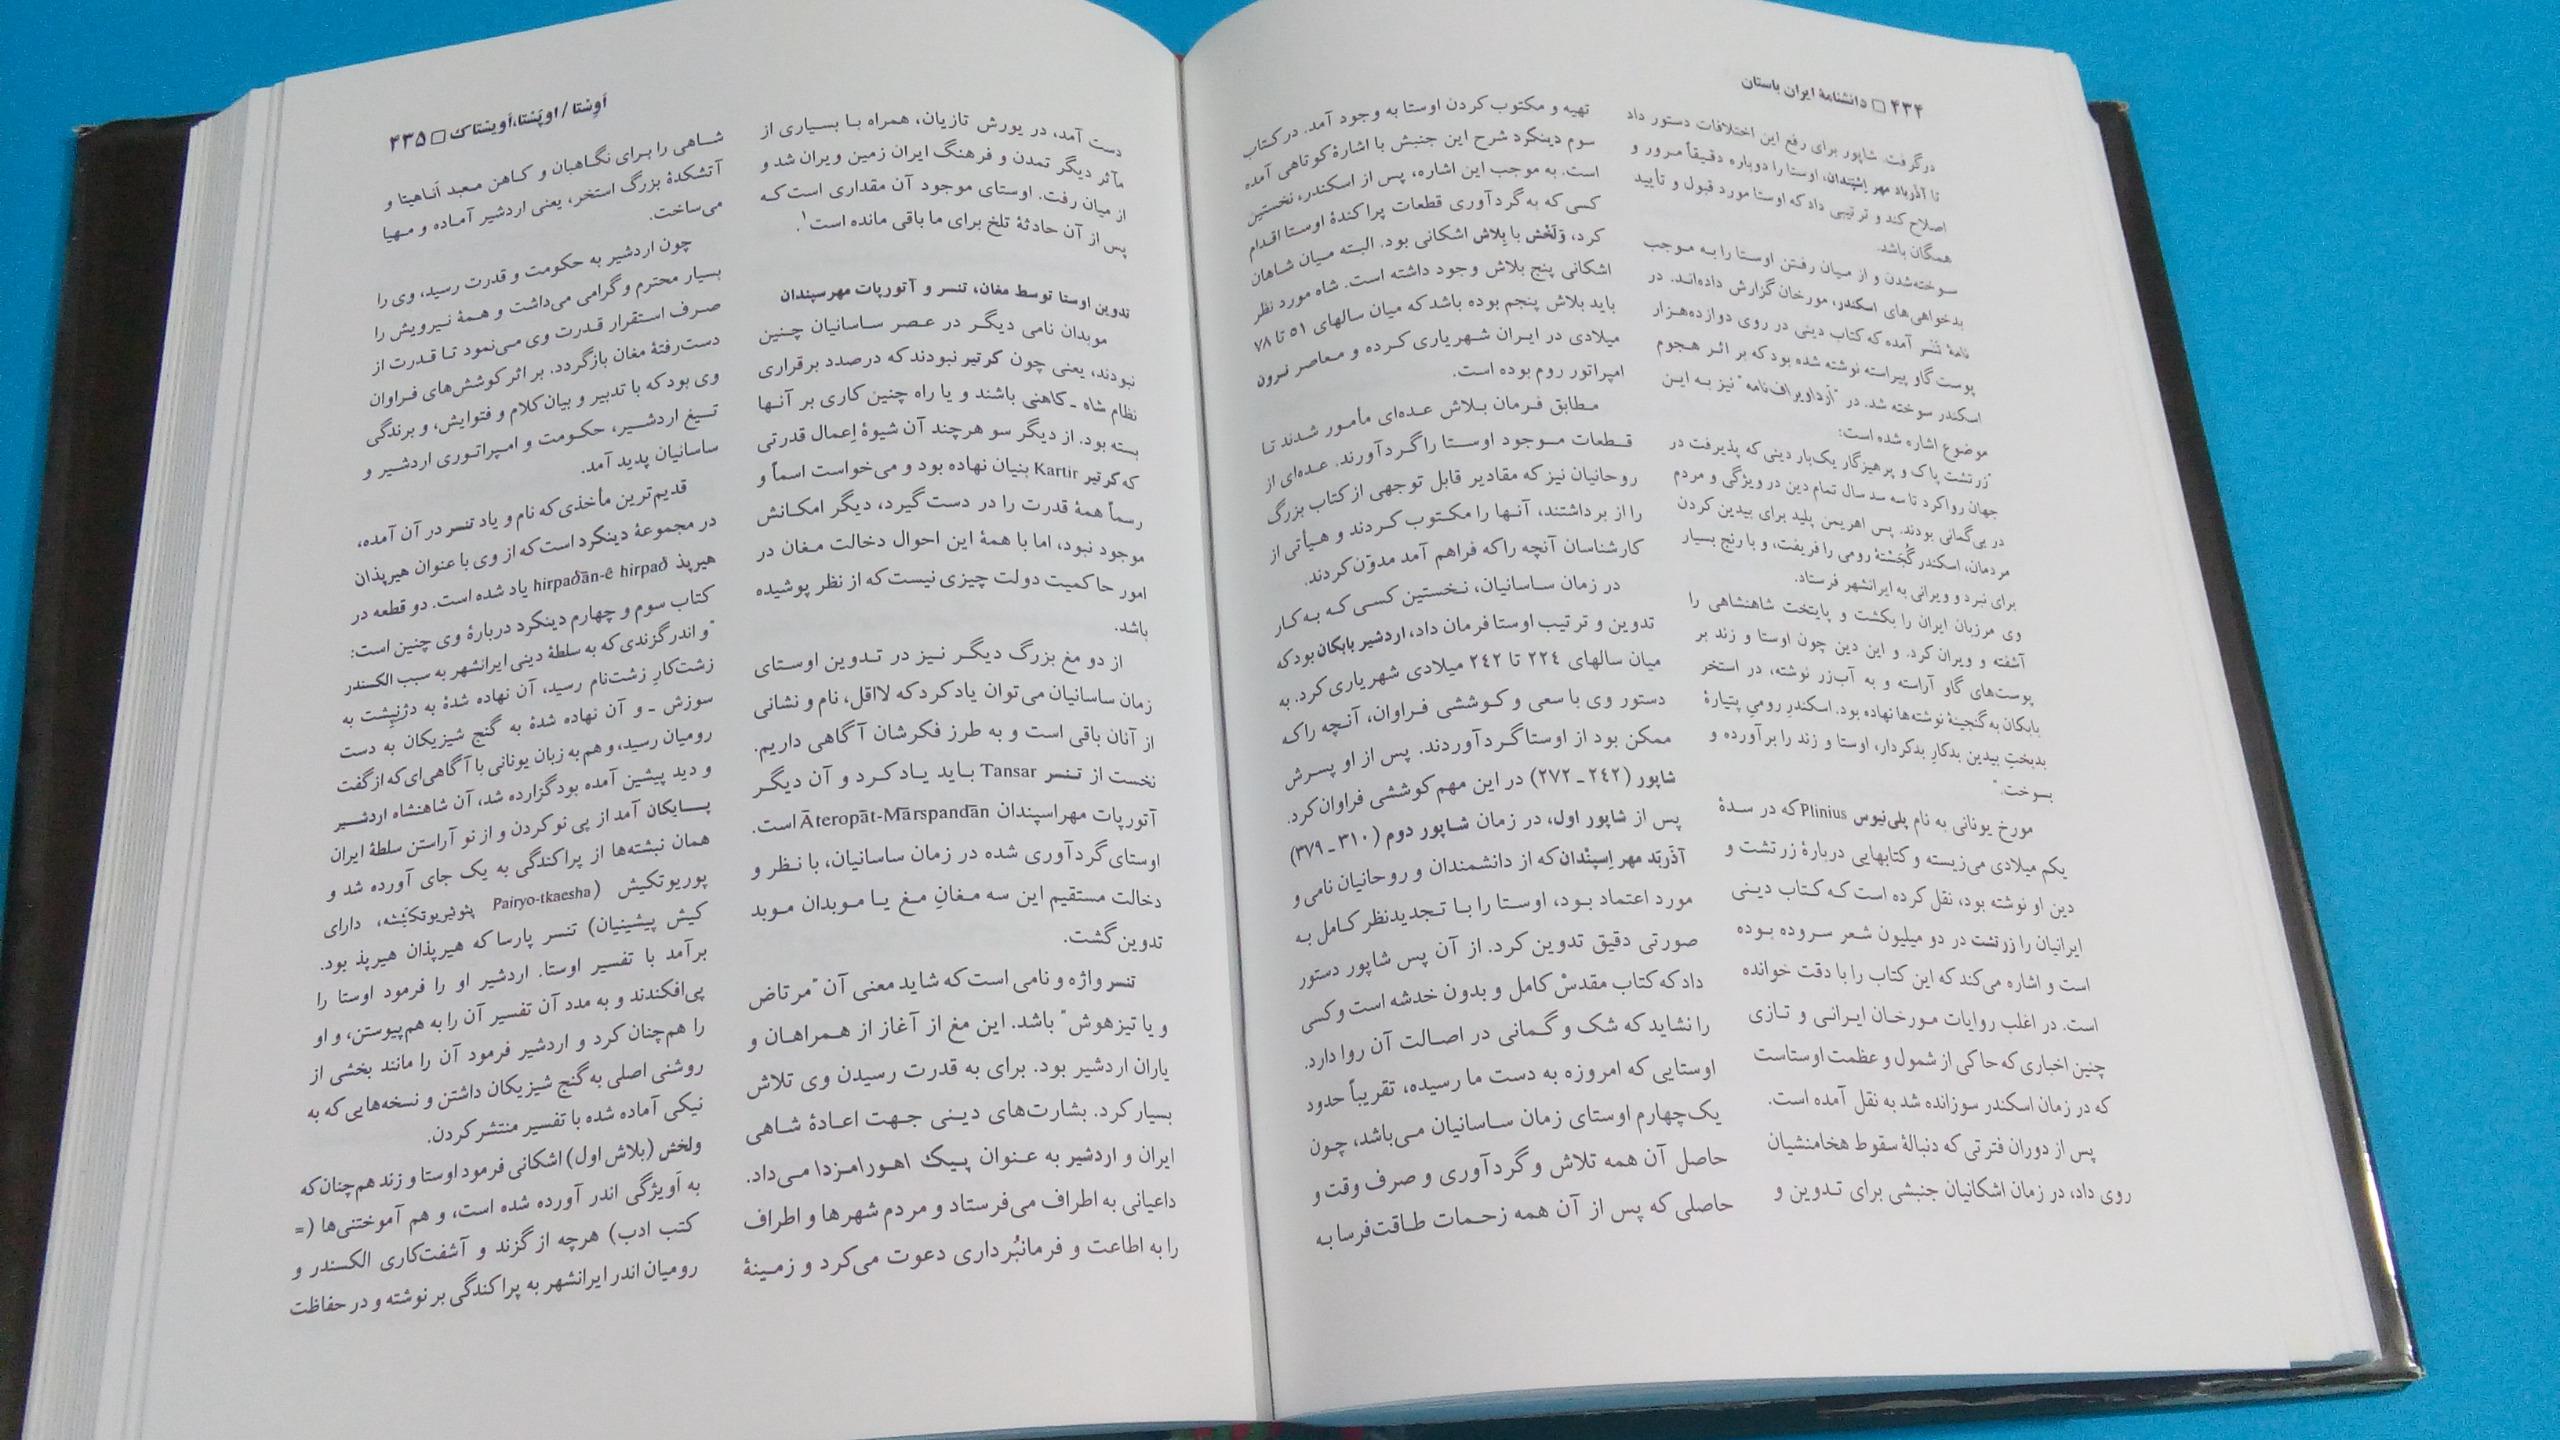 ۴۳۴ □ دانشنامهٔ ایران باستان
درگرفت. شاپور برای رفع این اختلافات دستور داد
تا آذرباد مهر اِسْپَندان، اوستا را دوباره دقیقاً مرور و
اصلاح کند و ترتیبی داد که اوستا مورد قبول و تأیید
همگان باشد.
سوخته‌شدن و از میان رفتن اوستا را به موجب
بدخواهی‌های اسکندر، مورخان گزارش داده‌اند. در
نامهٔ تَنسر آمده که کتاب دینی در روی دوازده‌هزار
پوست گاو پیراسته نوشته شده بود که بر اثر هجوم
اسکندر سوخته شد. در "اَرداویراف‌نامه" نیز به این
موضوع اشاره شده است:
"زرتشت پاک و پرهیزگار یک‌بار دینی که پذیرفت در
جهان رواکرد تا سه سد سال تمام دین در ویژگی و مردم
در بی‌گمانی بودند. پس اهریمن پلید برای بیدین کردن
مردمان، اسکندر گُجَستهٔ رومی را فریفت، و با رنج بسیار
برای نبرد و ویرانی به ایرانشهر فرستاد.
وی مرزبان ایران را بکشت و پایتخت شاهنشاهی را
آشفته و ویران کرد. و این دین چون اوستا و زند بر
پوست‌های گاو آراسته و به آب‌زر نوشته، در استخر
بابکان به گنجینهٔ نوشته‌ها نهاده بود. اسکندرِ رومیِ پتیارهٔ
بدبختِ بیدین بدکارِ بدکردار، اوستا و زند را برآورده و
بسوخت."
مورخ یونانی به نام پلی‌نیوس Plinius که در سدهٔ
یکم میلادی می‌زیسته و کتابهایی دربارهٔ زرتشت و
دین او نوشته بود، نقل کرده است که کتاب دینی
ایرانیان را زرتشت در دو میلیون شعر سروده بوده
است و اشاره می‌کند که این کتاب را با دقت خوانده
است. در اغلب روایات مورخان ایرانی و تازی
چنین اخباری که حاکی از شمول و عظمت اوستاست
که در زمان اسکندر سوزانده شد به نقل آمده است.
پس از دوران فترتی که دنبالهٔ سقوط هخامنشیان
روی داد، در زمان اشکانیان جنبشی برای تدوین و
تهیه و مکتوب کردن اوستا به وجود آمد. در کتاب
سوم دینکرد شرح این جنبش با اشارهٔ کوتاهی آمده
است. به موجب این اشاره، پس از اسکندر، نخستین
کسی که به گردآوری قطعات پراکندهٔ اوستا اقدام
کرد، وَلَخْش یا بلاش اشکانی بود. البته میان شاهان
اشکانی پنج بلاش وجود داشته است. شاه مورد نظر
باید بلاش پنجم بوده باشد که میان سالهای ۵۱ تا ۷۸
میلادی در ایران شهریاری کرده و معاصر نرون
امپراتور روم بوده است.
مطابق فرمان بلاش عده‌ای مأمور شدند تا
قطعات موجود اوستا را گردآورند. عده‌ای از
روحانیان نیز که مقادیر قابل توجهی از کتاب بزرگ
را از بر داشتند، آنها را مکتوب کردند و هیأتی از
کارشناسان آنچه را که فراهم آمد مدوّن کردند.
در زمان ساسانیان، نخستین کسی که به کار
تدوین و ترتیب اوستا فرمان داد، اردشیر بابکان بود که
میان سالهای ۲۲۴ تا ۲۴۲ میلادی شهریاری کرد. به
دستور وی با سعی و کوششی فراوان، آنچه را که
ممکن بود از اوستا گردآوردند. پس از او پسرش
شاپور (۲۴۲ ـ ۲۷۲) در این مهم کوششی فراوان کرد.
پس از شاپور اول، در زمان شاپور دوم (۳۱۰ ـ ۳۷۹)
آذَربَد مهر اِسپنْدان که از دانشمندان و روحانیان نامی و
مورد اعتماد بود، اوستا را با تجدیدنظر کامل به
صورتی دقیق تدوین کرد. از آن پس شاپور دستور
داد که کتاب مقدسْ کامل و بدون خدشه است و کسی
را نشاید که شک و گمانی در اصالت آن روا دارد.
اوستایی که امروزه به دست ما رسیده، تقریباً حدود
یک‌چهارم اوستای زمان ساسانیان می‌باشد، چون
حاصل آن همه تلاش و گردآوری و صرف وقت و
حاصلی که پس از آن همه زحمات طاقت‌فرسا به
اَوِستا / اوپَستا،اَویستاک □ ۴۳۵
دست آمد، در یورش تازیان، همراه با بسیاری از
مآثر دیگر تمدن و فرهنگ ایران زمین ویران شد و
از میان رفت. اوستای موجود آن مقداری است که
پس از آن حادثهٔ تلخ برای ما باقی مانده است۱.
تدوین اوستا توسط مغان، تنسر و آتورپات مهرسپندان
موبدان نامی دیگر در عصر ساسانیان چنین
نبودند، یعنی چون کرتیر نبودند که درصدد برقراری
نظام شاه ـ کاهنی باشند و یا راه چنین کاری بر آنها
بسته بود. از دیگر سو هرچند آن شیوهٔ اِعمال قدرتی
که کرتیر Kartir بنیان نهاده بود و می‌خواست اسماً و
رسماً همهٔ قدرت را در دست گیرد، دیگر امکانش
موجود نبود، اما با همهٔ این احوال دخالت مغان در
امور حاکمیت دولت چیزی نیست که از نظر پوشیده
باشد.
از دو مغ بزرگ دیگر نیز در تدوین اوستای
زمان ساسانیان می‌توان یاد کرد که لااقل، نام و نشانی
از آنان باقی است و به طرز فکرشان آگاهی داریم.
نخست از تنسر Tansar باید یاد کرد و آن دیگر
آتورپات مهراسپندان Āteropāt-Mārspandān است.
اوستای گردآوری شده در زمان ساسانیان، با نظر و
دخالت مستقیم این سه مغانِ مغ یا موبدان موبد
تدوین گشت.
تنسر واژه و نامی است که شاید معنی آن "مرتاض
و یا تیزهوش" باشد. این مغ از آغاز از همراهان و
یاران اردشیر بود. برای به قدرت رسیدن وی تلاش
بسیار کرد. بشارت‌های دینی جهت اعادهٔ شاهی
ایران و اردشیر به عنوان پیک اهورامزدا می‌داد.
داعیانی به اطراف می‌فرستاد و مردم شهرها و اطراف
را به اطاعت و فرمانبُرداری دعوت می‌کرد و زمینهٔ
شاهی را برای نگاهبان و کاهن معبد آناهیتا و
آتشکدهٔ بزرگ استخر، یعنی اردشیر آماده و مهیا
می‌ساخت.
چون اردشیر به حکومت و قدرت رسید، وی را
بسیار محترم و گرامی می‌داشت و همهٔ نیرویش را
صرف استقرار قدرت وی می‌نمود تا قدرت از
دست‌رفتهٔ مغان بازگردد. بر اثر کوشش‌های فراوان
وی بود که با تدبیر و بیان کلام و فتوایش، و برندگی
تیغ اردشیر، حکومت و امپراتوری اردشیر و
ساسانیان پدید آمد.
قدیم‌ترین مأخذی که نام و یاد تنسر در آن آمده،
در مجموعهٔ دینکرد است که از وی با عنوان هیرپذان
هیرپذ hirpaδān-ê hirpaδ یاد شده است. دو قطعه در
کتاب سوم و چهارم دینکرد دربارهٔ وی چنین است:
"و اندر گزندی که به سلطهٔ دینی ایرانشهر به سبب الکسندر
زشت‌کارِ زشت‌نام رسید، آن نهاده شدهٔ به دژنِپِشت به
سوزش ـ و آن نهاده شدهٔ به گنج شیزیکان به دست
رومیان رسید، و هم به زبان یونانی با آگاهی‌ای که از گفت
و دید پیشین آمده بود گزارده شد، آن شاهنشاه اردشیر
پـاپکان آمد از پی نو کردن و از نو آراستن سلطهٔ ایران
همان نبشته‌ها از پراکندگی به یک جای آورده شد و
پوریوتکیش (Pairyo-tkaesha پئوئیریوتکئِشه، دارای
کیش پیشینیان) تنسر پارسا که هیرپذان هیرپذ بود.
برآمد با تفسیر اوستا. اردشیر او را فرمود اوستا را
پی‌افکندند و به مدد آن تفسیر آن را به هم‌پیوستن، و او
را هم‌چنان کرد و اردشیر فرمود آن را مانند بخشی از
روشنی اصلی به گنج شیزیکان داشتن و نسخه‌هایی که به
نیکی آماده شده با تفسیر منتشر کردن.
ولخش (بلاش اول) اشکانی فرمود اوستا و زند هم‌چنان که
به اَویژگی اندر آورده شده است، و هم آموختنی‌ها (=
کتب ادب) هرچه از گزند و آشفت‌کاری الکسندر و
رومیان اندر ایرانشهر به پراکندگی بر نوشته و در حفاظت